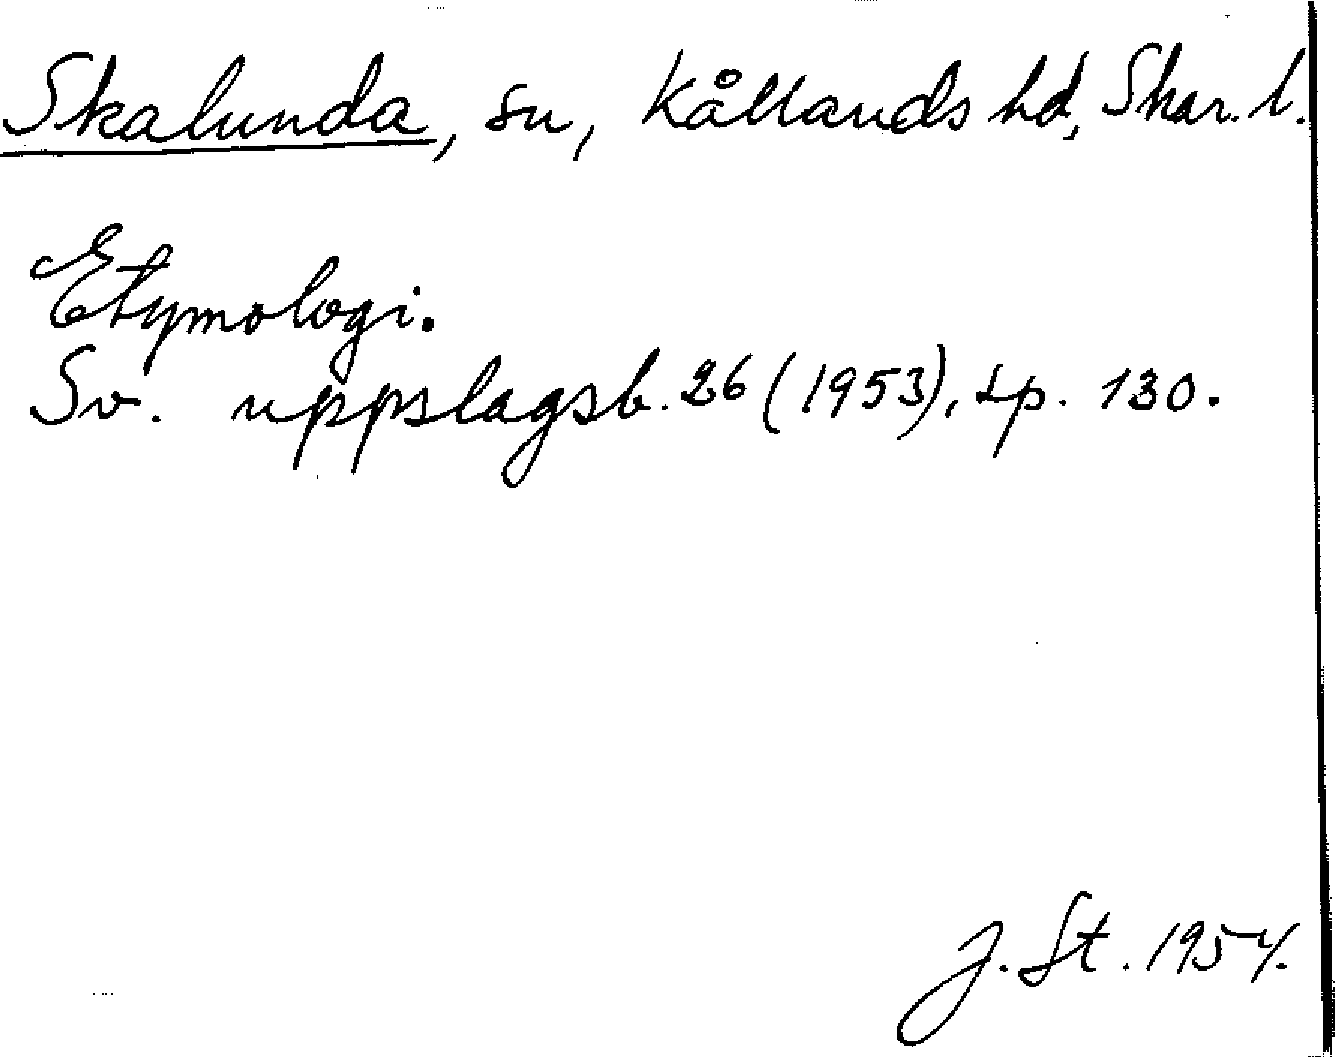 Skalunda, sn, Kållands hd, Skar. l.
Etymologi.
Sv. uppslagsb. 26 (1953), sp. 130.
J. St. 1954.